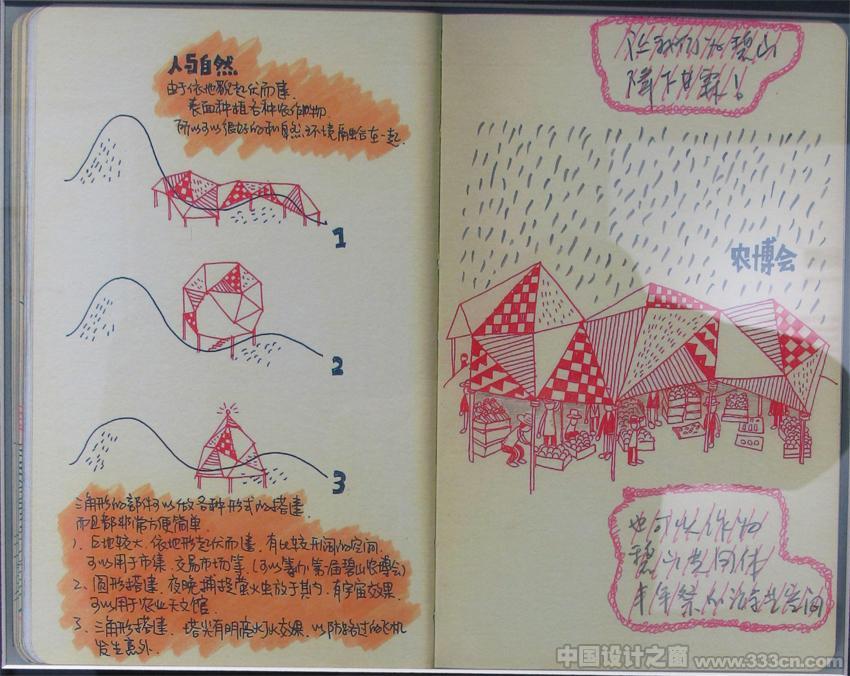 人与自然
由于依地貌起伏而建
表面种植各种农作物
所以可以很好的和自然环境融合在一起
1
2
3
三角形的部件可以做各种形式的搭建
而且都非常方便简单
1、占地较大、依地形起伏而建、有比较开阔的空间
可以用于市集、交易市场等、(可以筹办第一届碧山农博会)
2、圆形搭建、夜晚捕捉萤火虫放于其内、有宇宙效果
可以用于农业天文馆
3、三角形搭建、塔尖有明亮灯火效果、以防路过的飞机
发生意外.
碧山
降下甘霖
农博会
也可以作为
碧山共同体
丰年祭的
空间
中国设计之窗 www.333cn.com